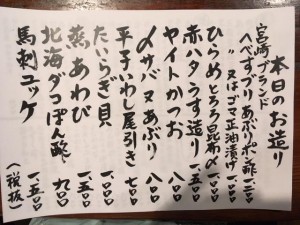 本日のお造り
宮崎ブランド
へべすブリ あぶりポン酢 一二〇〇
〃 又はゴマ正油漬け 一二〇〇
ひらめとろろ昆布〆 一〇〇〇
赤ハタうす造り 一五〇〇
ヤイトかつお 一八〇〇
〆サバ又あぶり 八〇〇
平子いわし尾引き 七〇〇
たいらぎ貝 一五〇〇
蒸あわび 一五〇〇
北海ダコぽん酢 九〇〇
馬刺ユッケ 一五〇〇
(税抜)